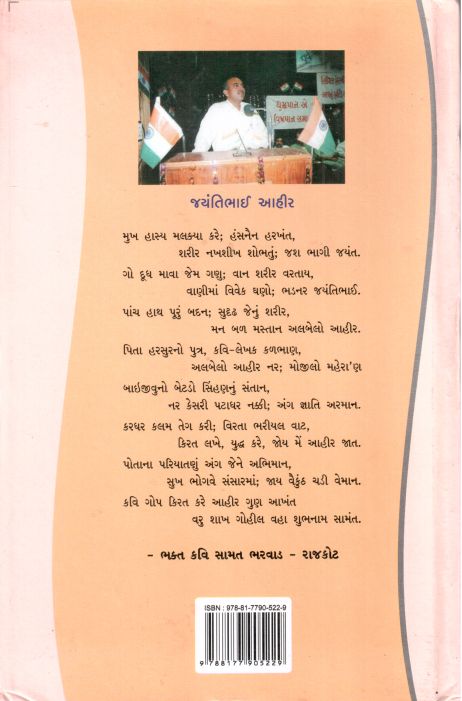 ધુમ્રપાન એ
વિષપાન સમા
જયંતિભાઈ આહીર
મુખ હાસ્ય મલક્યા કરે; હંસનૈન હરખંત,
શરીર નખશીખ શોભતું; જશ ભાગી જયંત.
ગો દૂધ માવા જેમ ગણુ; વાન શરીર વરતાય,
વાણીમાં વિવેક ઘણો; ભડનર જયંતિભાઈ.
પાંચ હાથ પૂરું બદન; સુદૃઢ જેનું શરીર,
મન બળ મસ્તાન અલબેલો આહીર.
પિતા હરસુરનો પુત્ર, કવિ-લેખક કળભાણ,
અલબેલો આહીર નર; મોજીલો મહેરા'ણ
બાઇજીવુનો બેટડો સિંહણનું સંતાન,
નર કેસરી પટાધર નક્કી; અંગ જ્ઞાતિ અરમાન.
કરધર કલમ તેગ કરી; વિરતા ભરીયલ વાટ,
કિરત લખે, યુદ્ધ કરે, જોય મેં આહીર જાત.
પોતાના પરિયાતણું અંગ જેને અભિમાન,
સુખ ભોગવે સંસારમાં; જાય વૈકુંઠ ચડી વેમાન.
કવિ ગોપ કિરત કરે આહીર ગુણ આખંત
વરુ શાખ ગોહીલ વહા શુભનામ સામંત.
- ભક્ત કવિ સામત ભરવાડ - રાજકોટ
ISBN : 978-81-7790-522-9
9 788177 905229